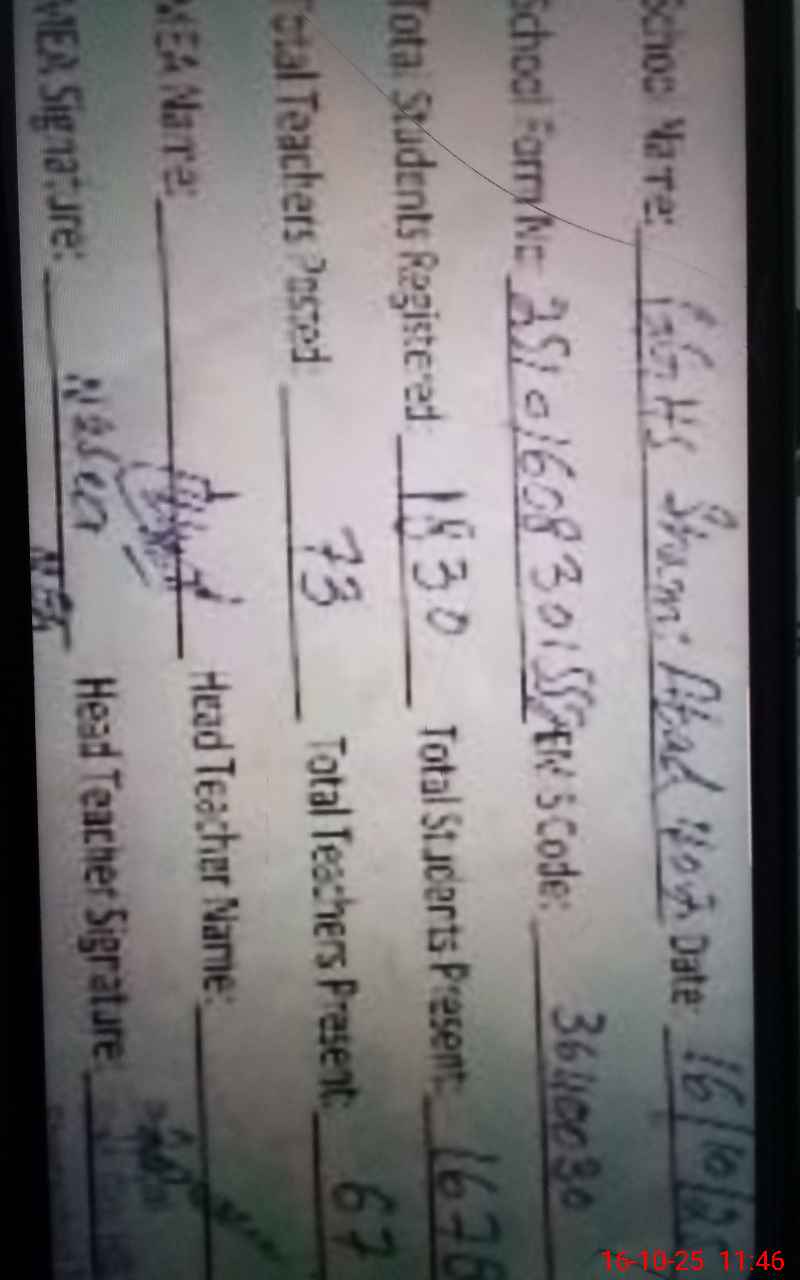 School Name: GGHS Shami Abad No 2 Date: 16/10/25
School Form No: 251016083015552 EMIS Code: 36110030
Total Students Registered: 1830 Total Students Present: 1676
Total Teachers Posted: 73 Total Teachers Present: 67
MEA Name: Head Teacher Name:
MEA Signature: Head Teacher Signature:
16-10-25 11:46